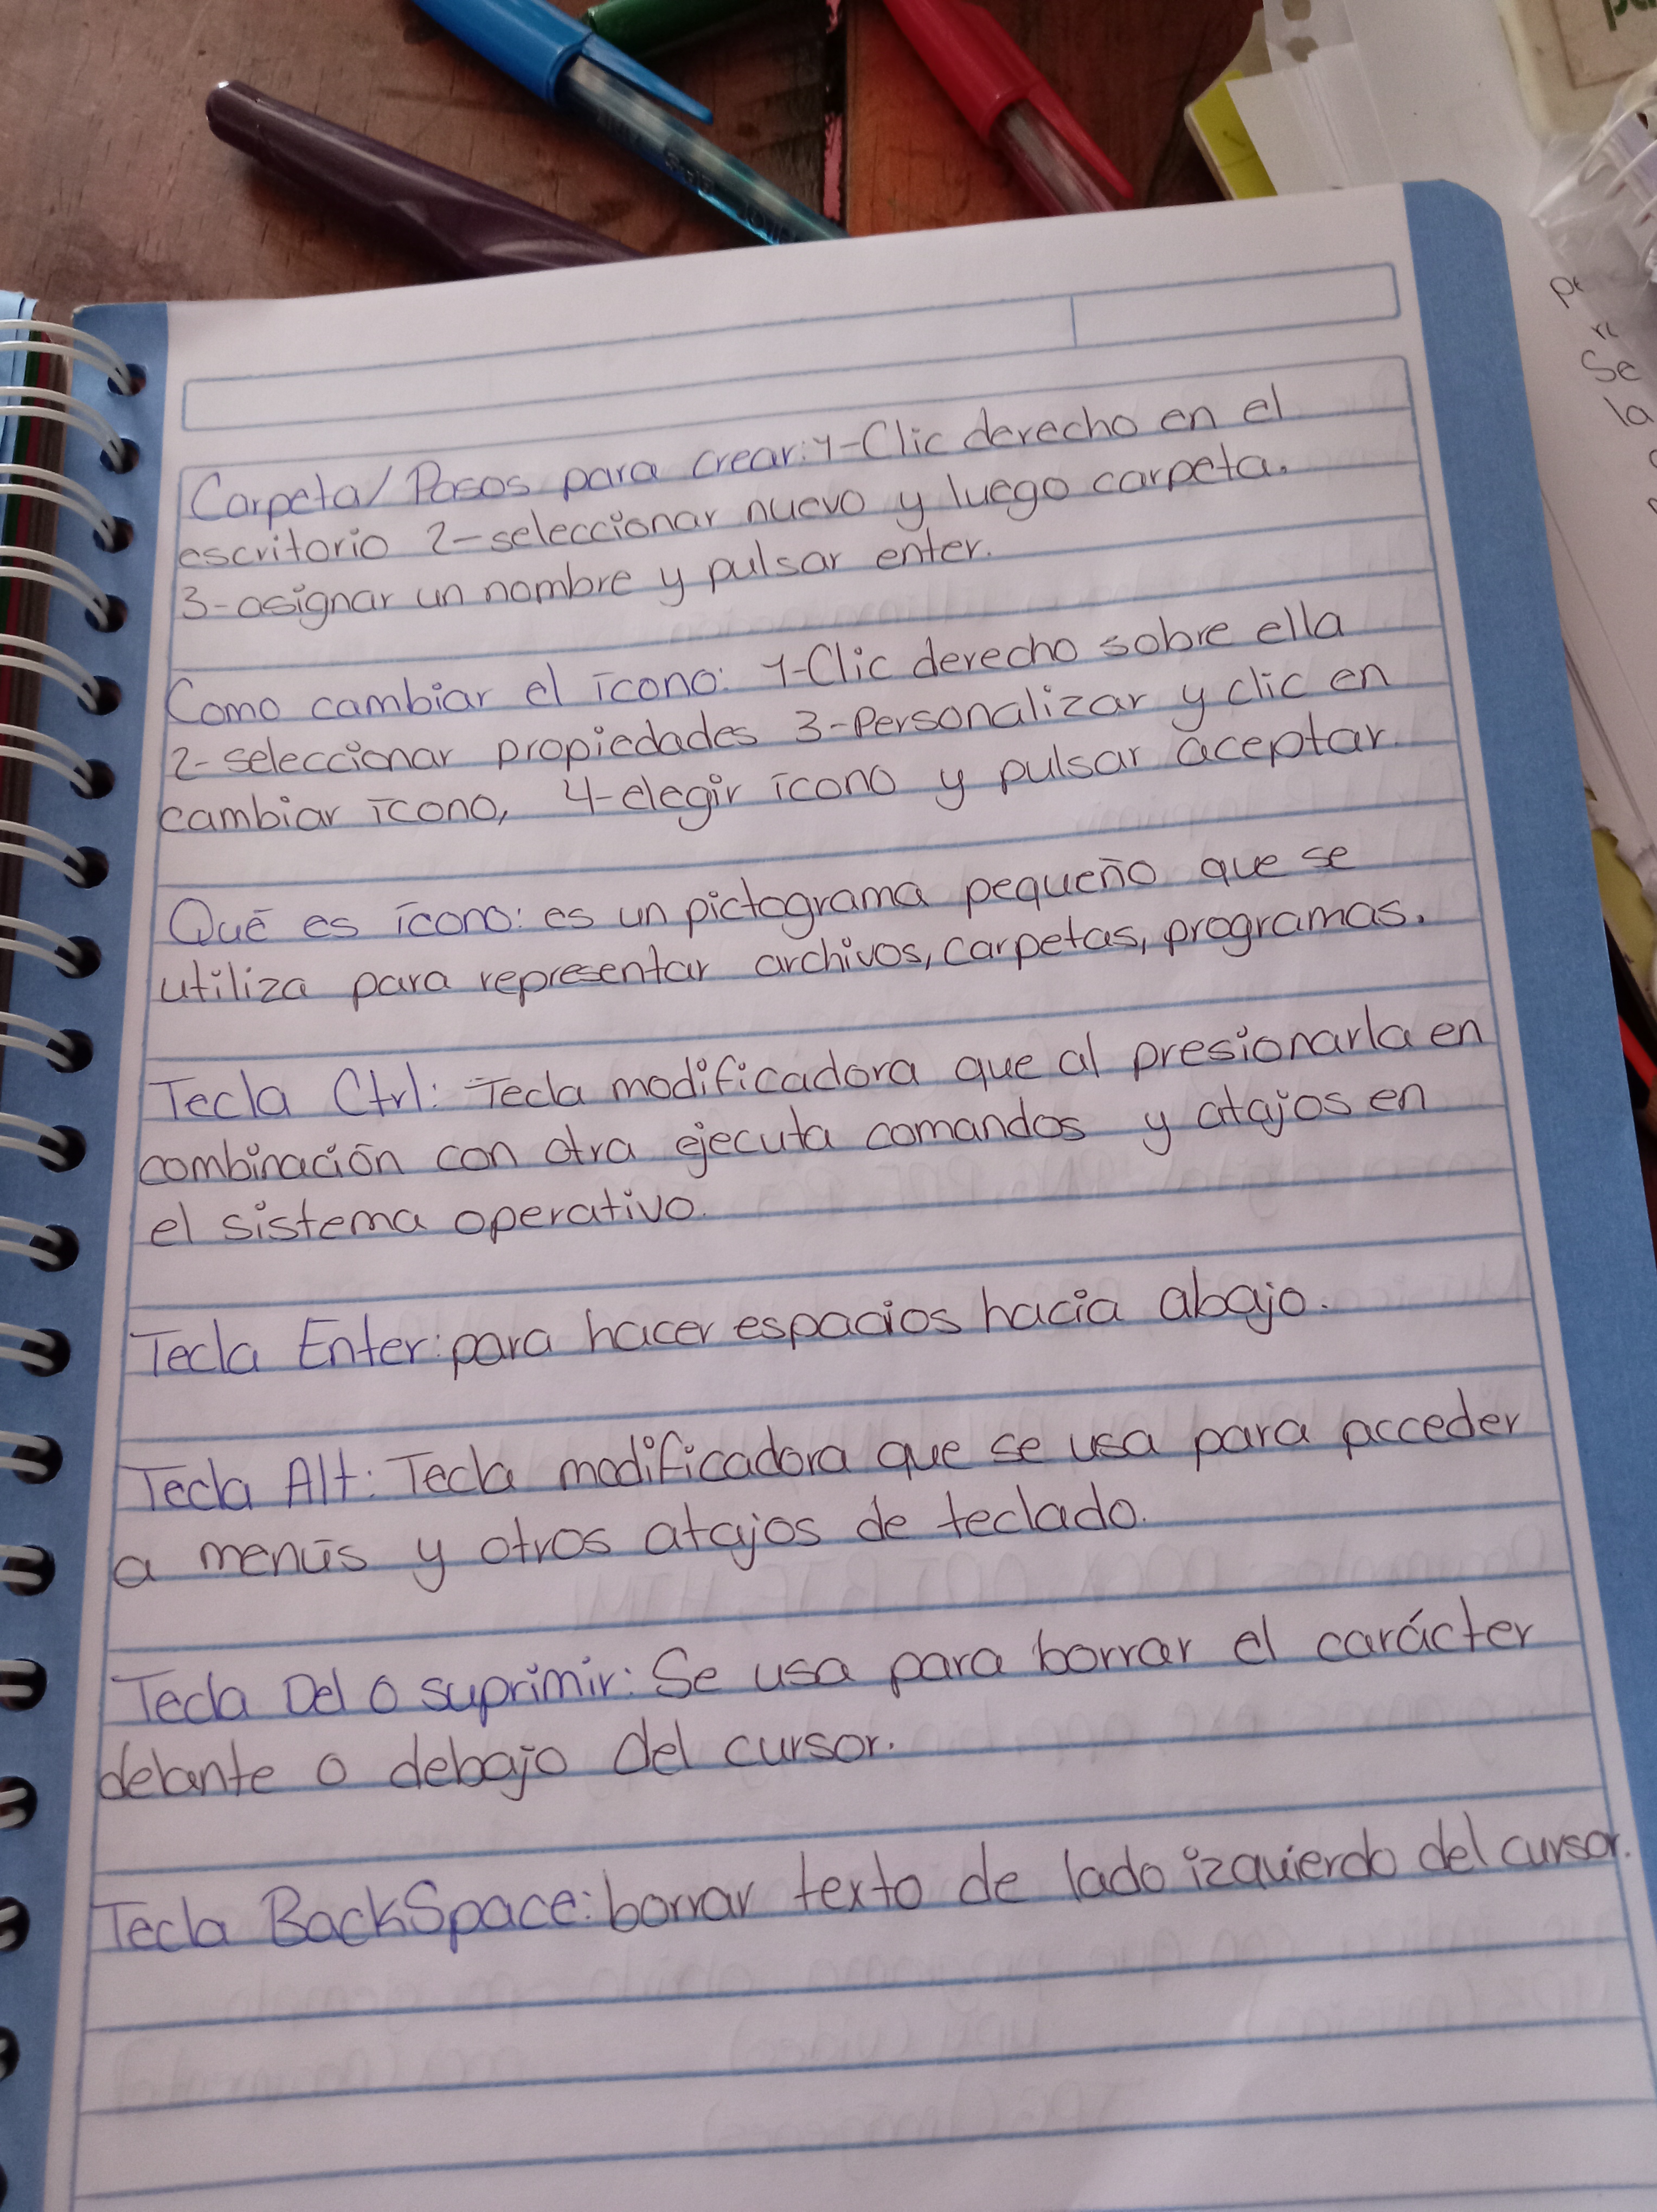 Carpeta/ Pasos para crear: 1-Clic derecho en el
escritorio 2-seleccionar nuevo y luego carpeta.
3-asignar un nombre y pulsar enter.
Como cambiar el ícono: 1-Clic derecho sobre ella
2-seleccionar propiedades 3-Personalizar y clic en
cambiar ícono, 4-elegir ícono y pulsar aceptar.
Qué es ícono: es un pictograma pequeño que se
utiliza para representar archivos, carpetas, programas.
Tecla Ctrl: Tecla modificadora que al presionarla en
combinación con otra ejecuta comandos y atajos en
el sistema operativo.
Tecla Enter: para hacer espacios hacia abajo.
Tecla Alt: Tecla modificadora que se usa para acceder
a menús y otros atajos de teclado.
Tecla Del o suprimir: Se usa para borrar el carácter
delante o debajo del cursor.
Tecla BackSpace: borrar texto de lado izquierdo del cursor.
Se
la